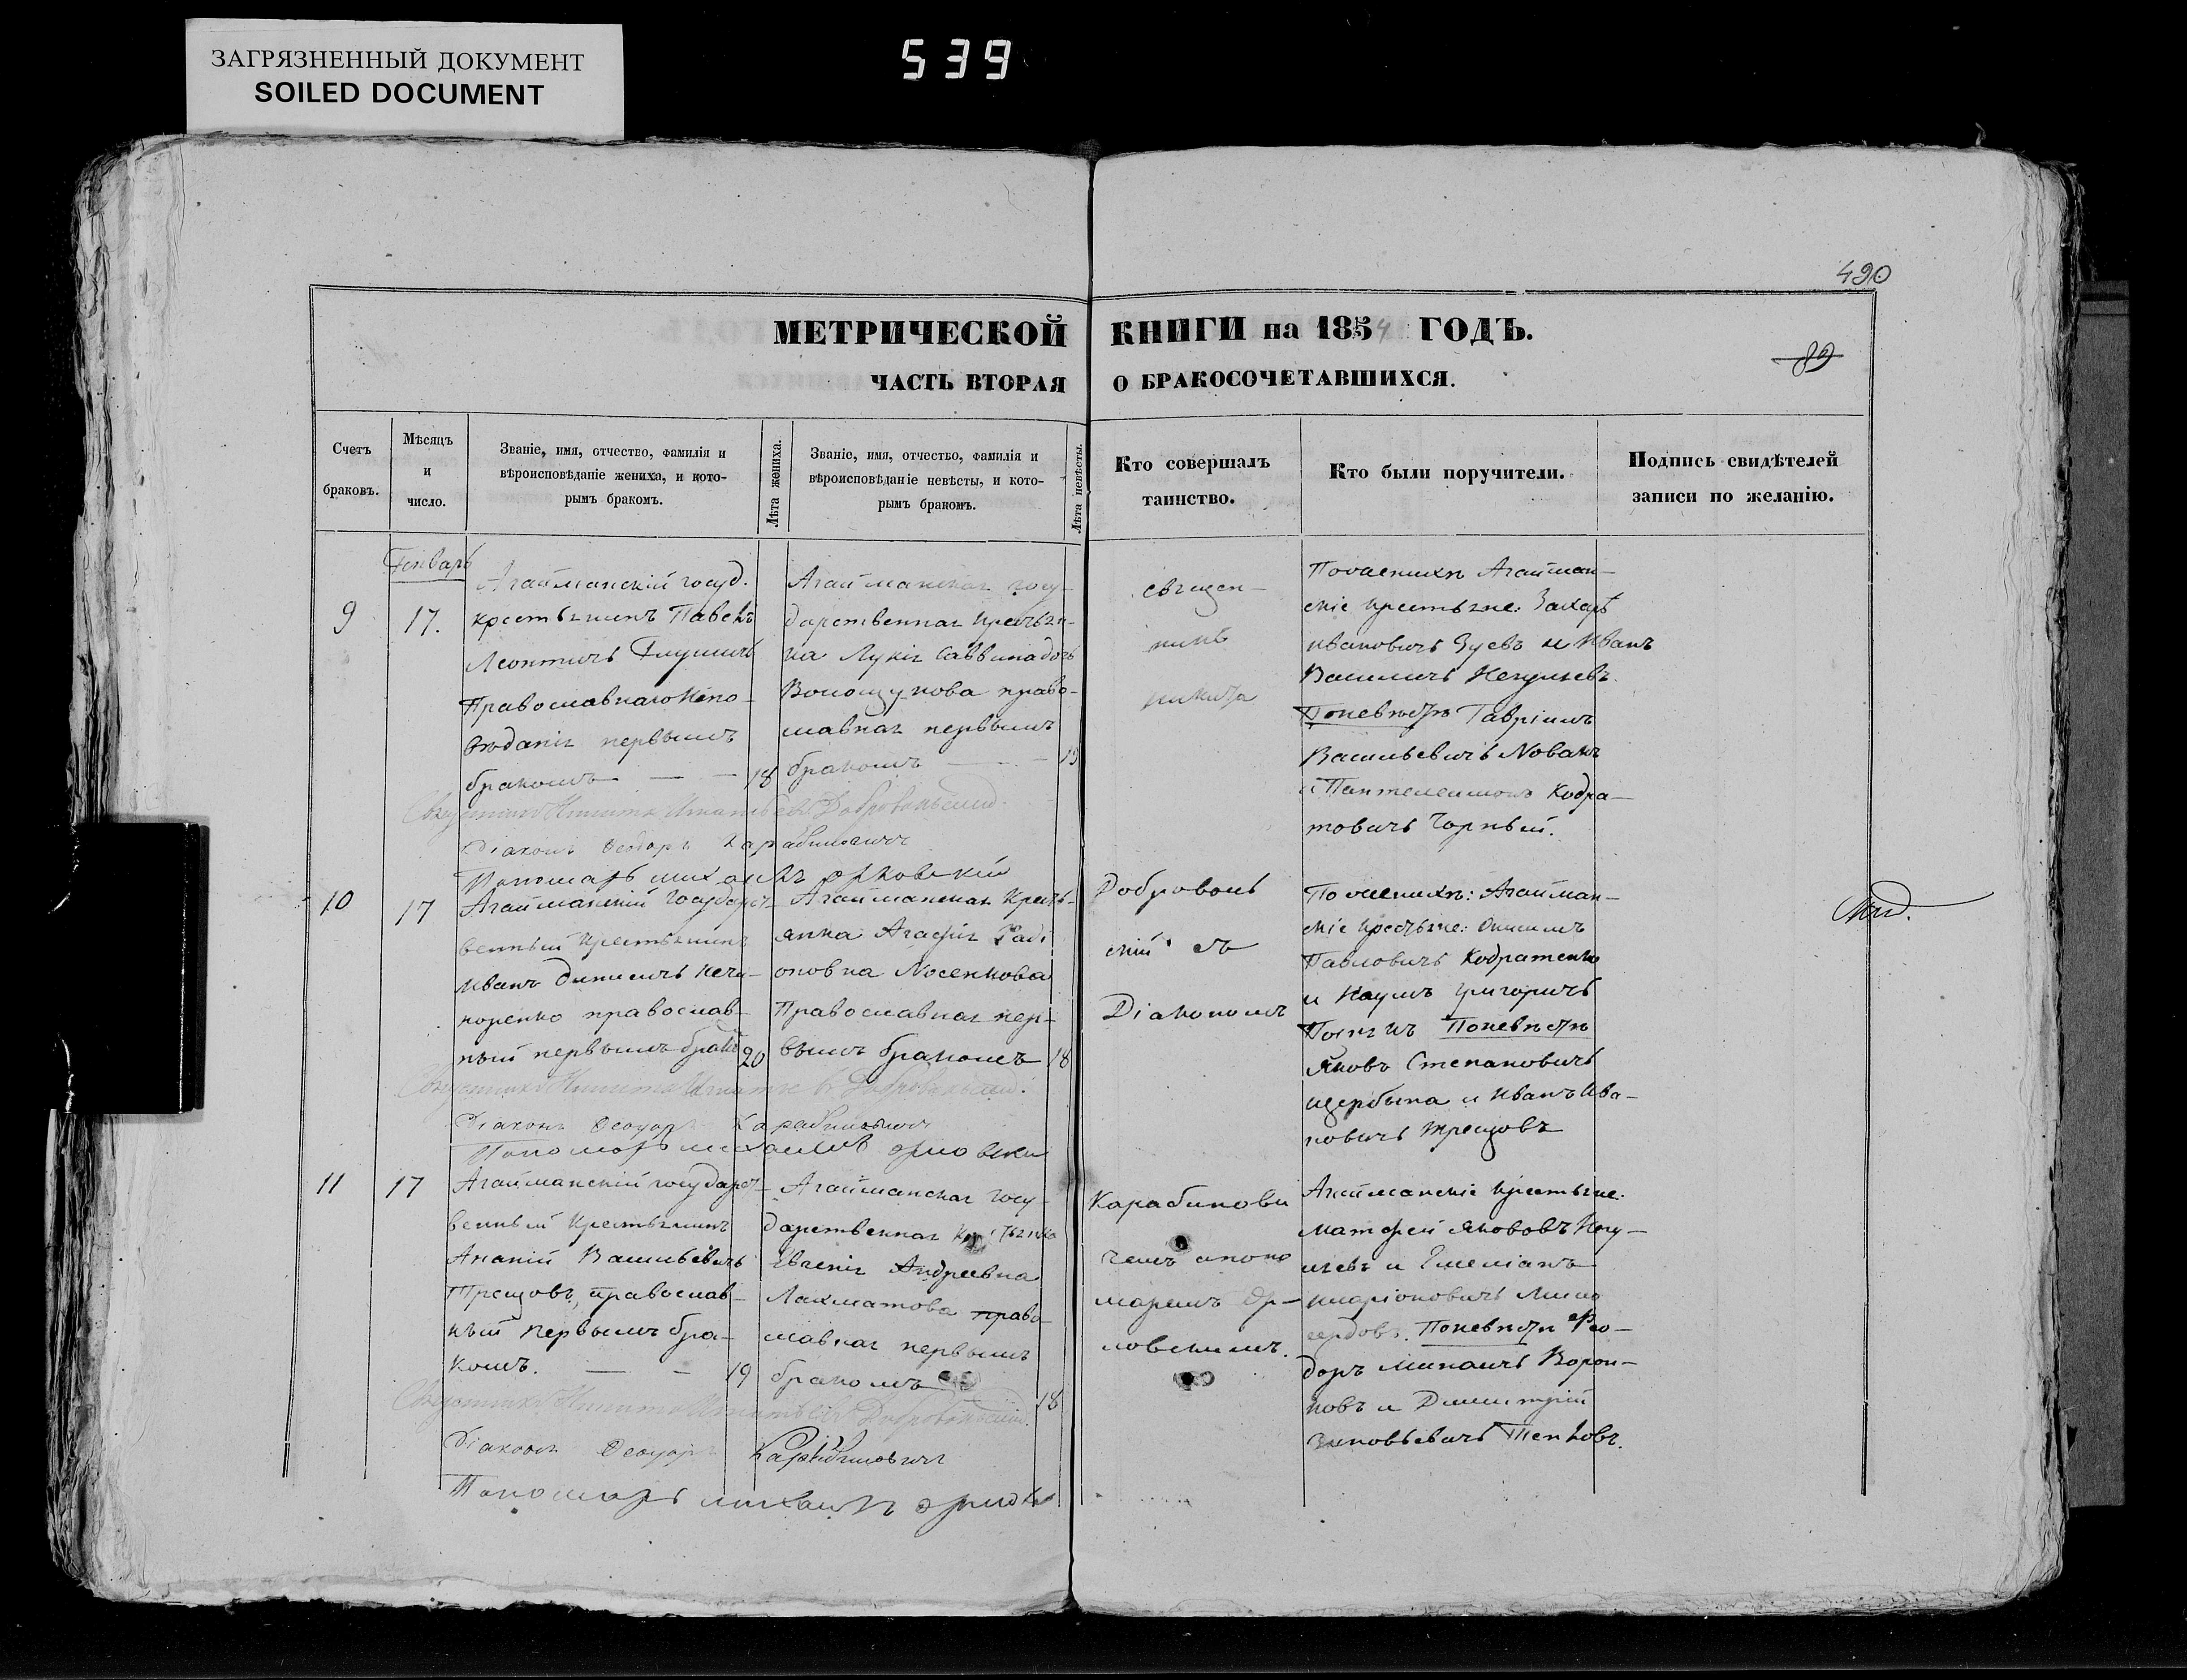 ЗАГРЯЗНЕННЫЙ ДОКУМЕНТ
SOILED DOCUMENT
539
490
МЕТРИЧЕСКОЙ КНИГИ на 1854 ГОДЪ.
89
ЧАСТЬ ВТОРАЯ О БРАКОСОЧЕТАВШИХСЯ.
Счетъ
браковъ.
Мѣсяцъ
и
число.
Званіе, имя, отчество, фамилія и
вѣроисповѣданіе жениха, и кото-
рымъ бракомъ.
Лѣта жениха.
Званіе, имя, отчество, фамилія и
вѣроисповѣданіе невѣсты, и кото-
рымъ бракомъ.
Лѣта невѣсты.
Кто совершалъ
таинство.
Кто были поручители.
Подпись свидѣтелей
записи по желанію.
Генварь
9
17.
Агайманскій госуд.
крестьянинъ Павелъ
Леонтичъ
Православнаго Испо-
вѣданія первымъ
бракомъ
18
Агайманская госу-
дарственная крестьян-
ка Лукія Саввина дочь
Волощукова право-
славная первымъ
бракомъ
19
священ-
никъ
Никита
По женихѣ Агайман-
скіе крестьяне: Захаръ
Ивановичъ Зуевъ и Иванъ
Васильичъ
По невѣстѣ Гавріилъ
Васильевичъ Новакъ
и Пантелеимонъ Кодра-
товичъ Чорный.
Священникъ Никита Игнатьевъ Добровольскій.
Діаконъ Ѳеодоръ Карабиновичъ
Пономарь Михаилъ Орловскій
10
17
Агайманскій Государст-
венный крестьянинъ
Иванъ Данилычъ Нечи-
поренко православ-
ный первымъ бракъ
20
Агайманская Кресть-
янка Агафія Ради
оновна Носенкова
Православная пер-
вымъ бракомъ
18
Доброволь
скій съ
Діакономъ
По женихѣ: Агайман-
скіе крестьяне: Онисимъ
Павловичъ Кодратенко
и Наумъ Григоричъ
По невѣстѣ
Яковъ Степановичъ
Щербына и Иванъ Ива-
новичъ Трещовъ
Священникъ Никита Игнатьевъ Добровольскій.
Діаконъ Ѳеодоръ Карабиновичъ
Пономарь Михаилъ Орловски
11
17
Агайманскій государст-
венный Крестьянинъ
Ананій Васильевичъ
Трещовъ, православ-
ный первымъ бра-
комъ.
19
Агайманская госу-
дарственная крестьянка
Евгенія Андреевна
Лахматова право-
славная первымъ
бракомъ
18
Карабинови
чемъ и поно
маремъ Ор-
ловскимъ.
Агайманскіе крестьяне:
Матфей Яковъ
и Емеліанъ
Иларіоновичъ Мило
сердовъ. По невѣстѣ Ѳео-
доръ Михаичъ Ворон-
ковъ и Димитрій
Зиновьевичъ
Священникъ Никита Игнатьевъ Добровольскій.
Діаконъ Ѳеодоръ Карабиновичъ
Пономарь Михаилъ